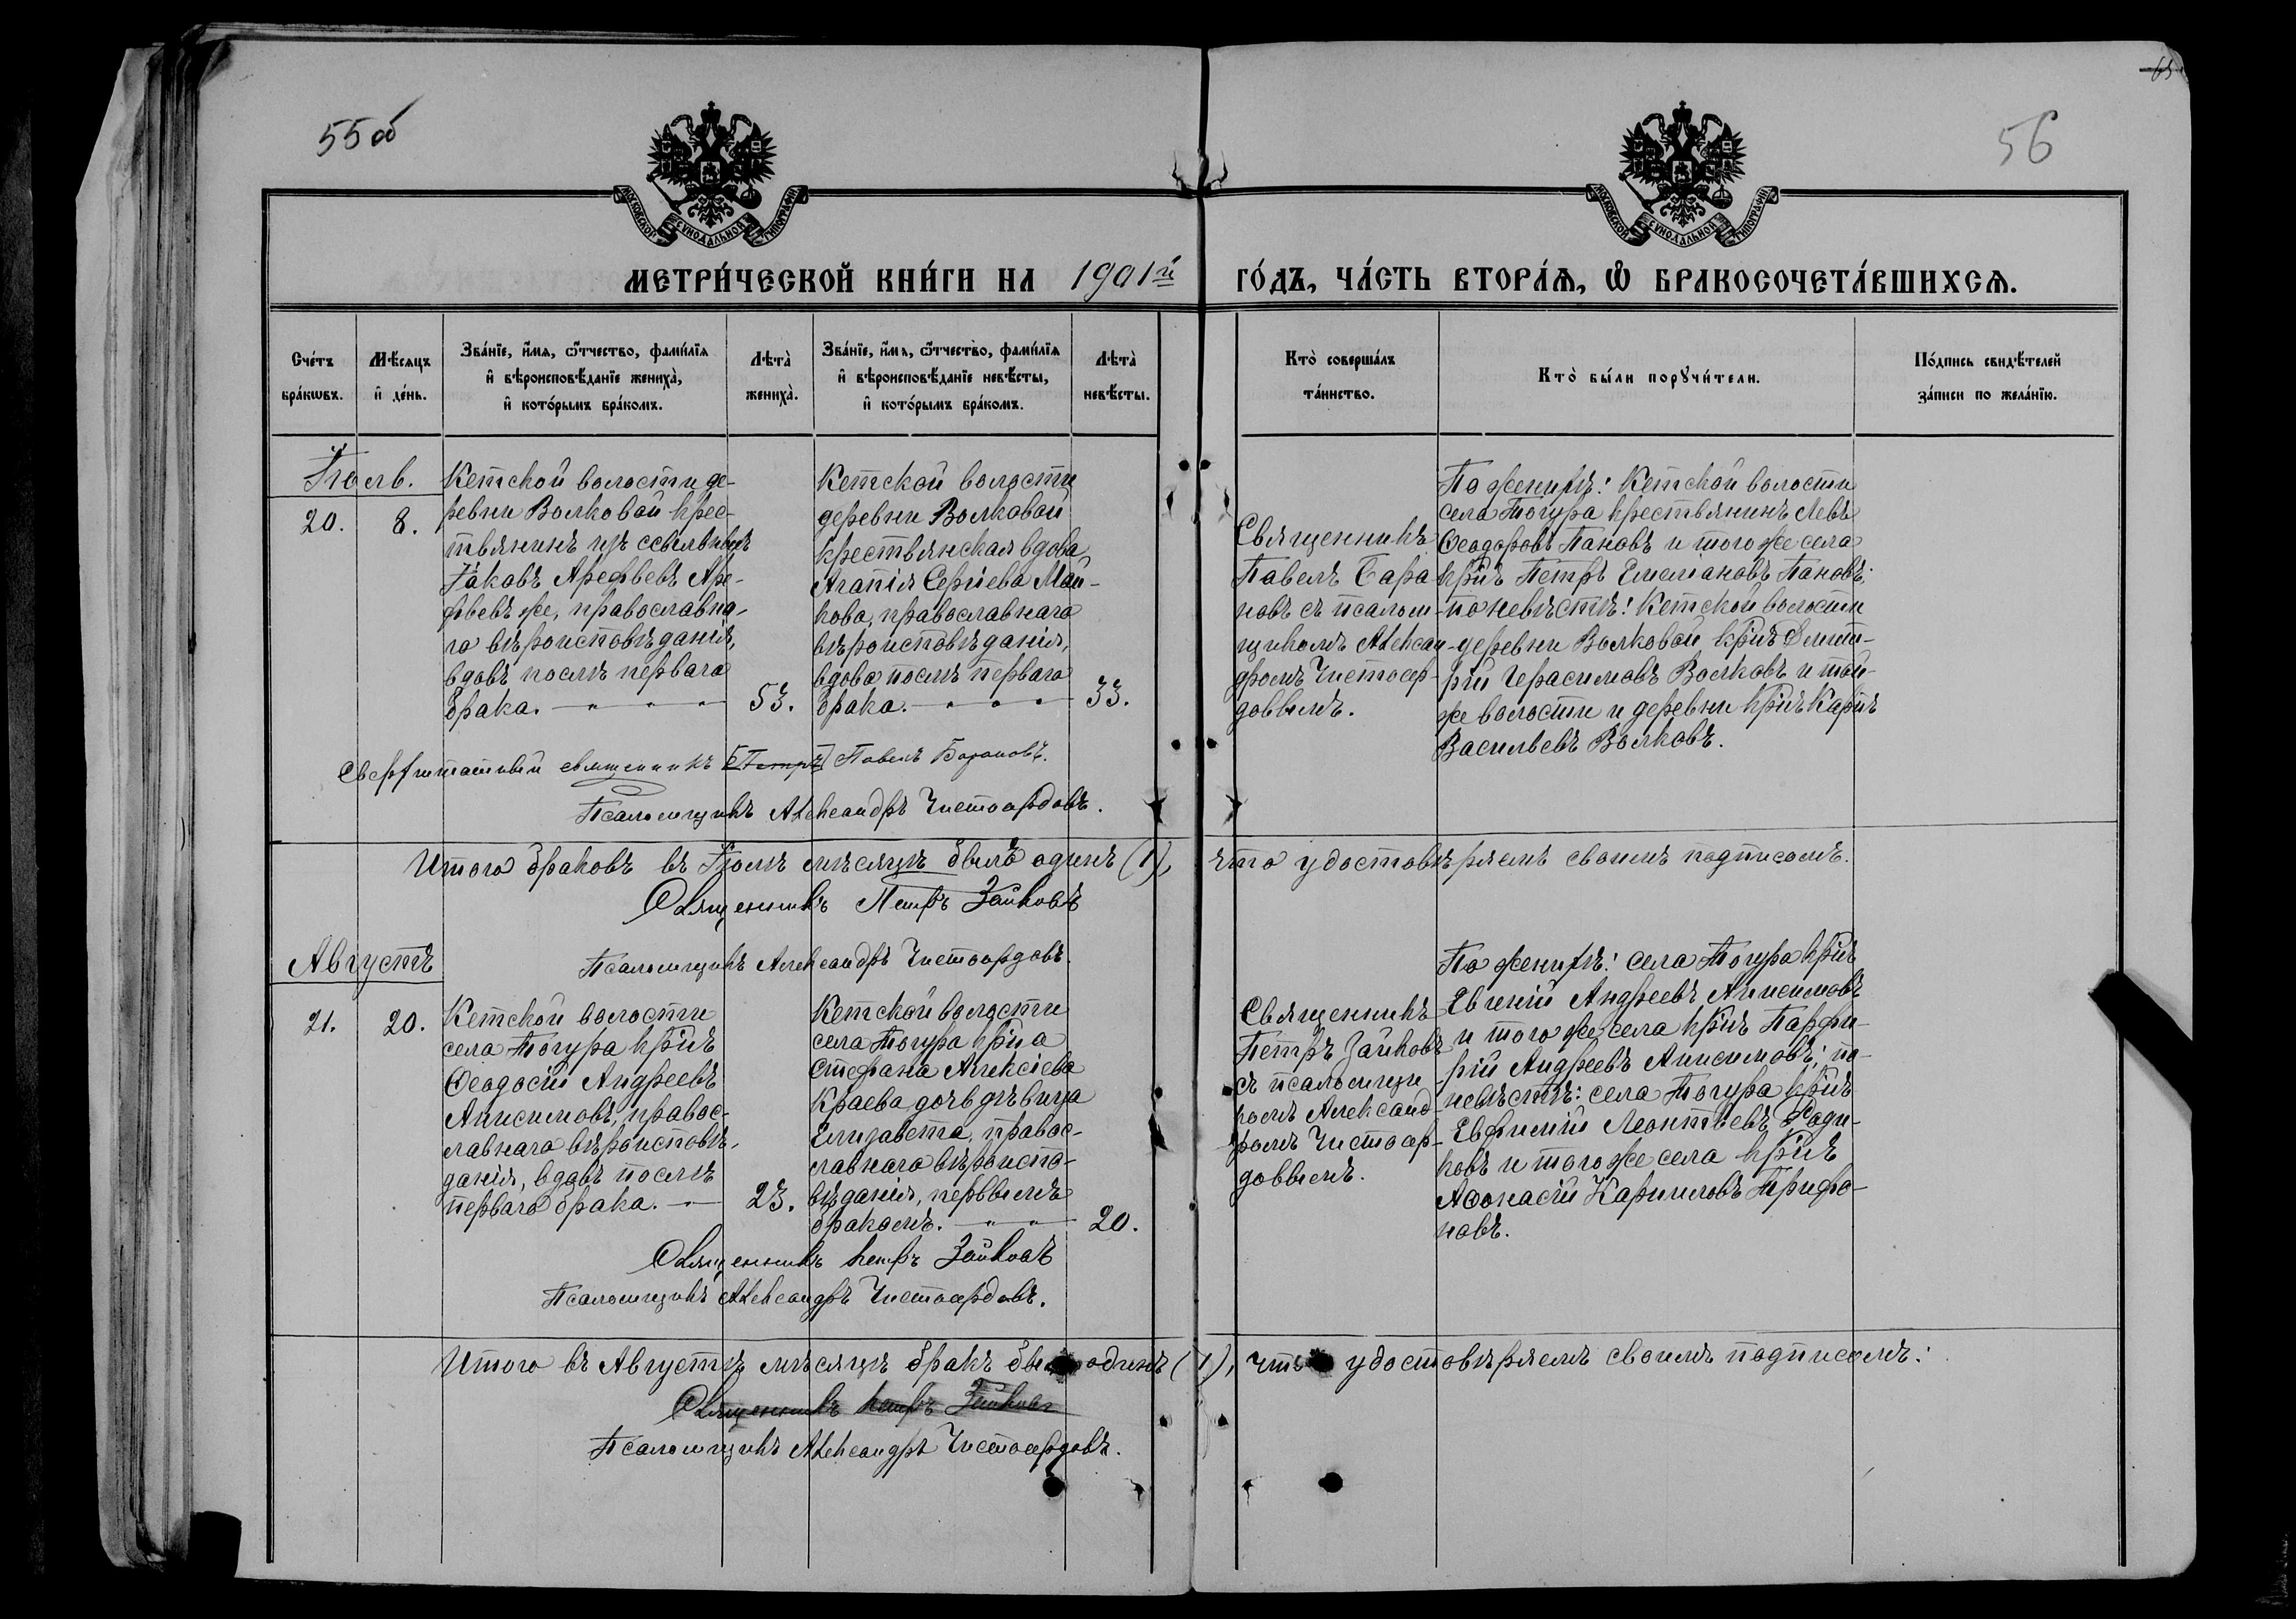 55об
56
65
МОСКОВСКОЙ СѴНОДАЛЬНОЙ ТИПОГРАФІИ
МОСКОВСКОЙ СѴНОДАЛЬНОЙ ТИПОГРАФІИ
МЕТРИ́ЧЕСКОЙ КНИ́ГИ НА 1901й ГО́ДЪ, ЧА́СТЬ ВТОРА́Ѧ, Ѡ БРАКОСОЧЕТА́ВШИХСѦ.
Сче́тъ
бра́кѡвъ.
Мѣ́сяцъ
и҆ де́нь.
Зва́нїе, и҆́мѧ, ѻ҆́тчество, фамн́лїѧ
и҆ вѣроисповѣ́данїе женихà,
и҆ кото́рымъ бра́комъ.
Лѣтà
женихà.
Зва́нїе, и҆́мѧ, ѻ҆́тчество, фами́лїѧ
и҆ вѣроисповѣ́данїе невѣ́сты,
и҆ кото́рымъ бра́комъ.
Лѣтà
невѣ́сты.
Кто̀ соверша́лъ
та́инство.
Кто̀ бы́ли порꙋчи́тели.
По́дпись свидѣ́телей
за́писи по жела́нїю.
Іюль.
20.
8.
Кетской волости де-
ревни Волковой крес-
тьянинъ изъ ссыльныхъ
Іаковъ Арефьевъ Аре-
фьевъ же, православна-
го вѣроисповѣданія,
вдовъ послѣ перваго
брака.
53.
Кетской волости
деревни Волковой
крестьянская вдова
Агапія Сергіева Май-
кова, православнаго
вѣроисповѣданія,
вдова послѣ перваго
брака.
33.
Священникъ
Павелъ Бара-
новъ съ псалом-
щикомъ Алексан-
дромъ Чистосер-
довымъ.
По женихѣ: Кетской волости
села Тогура крестьянинъ Левъ
Ѳеодоровъ Пановъ и того же села
кр̃нъ Петръ Емельяновъ Пановъ;
по невѣстѣ: Кетской волости
деревни Волковой кр̃нъ Дмит-
рій Герасимовъ Волковъ и той-
же волости и деревни кр̃нъ Карпъ
Васильевъ Волковъ.
Сверхштатный священникъ [Петръ] Павелъ Барановъ.
Псаломщикъ Александръ Чистосердовъ.
Итого браковъ въ Іюлѣ мѣсяцѣ былъ одинъ (1), что удостовѣряемъ своимъ подписомъ.
Священникъ Петръ Зайковъ
Псаломщикъ Александръ Чистосердовъ.
Августъ
21.
20.
Кетской волости
села Тогура кр̃нъ
Ѳеодосій Андреевъ
Анисимовъ, правос-
лавнаго вѣроисповѣ-
данія, вдовъ послѣ
перваго брака.
23.
Кетской волости
села Тогура кр̃на
Стефана Алексіева
Краева дочь дѣвица
Елизавета, правос-
лавнаго вѣроиспо-
вѣданія, первымъ
бракомъ.
20.
Священникъ
Петръ Зайковъ
съ псаломщи-
комъ Александ-
ромъ Чистосер-
довымъ.
По женихѣ: села Тогура кр̃нъ
Евгеній Андреевъ Анисимовъ
и того же села кр̃нъ Парфи-
рій Андреевъ Анисимовъ; по-
невѣстѣ: села Тогура кр̃нъ
Евфимій Леонтьевъ Роди-
ковъ и того же села кр̃нъ
Аѳонасій Карпиловъ Трифо-
новъ.
Священникъ Петръ Зайковъ
Псаломщикъ Александръ Чистосердовъ.
Итого въ Августѣ мѣсяцѣ бракъ одинъ (1), что удостовѣряемъ своимъ подписомъ:
Священникъ Петръ Зайковъ
Псаломщикъ Александръ Чистосердовъ.